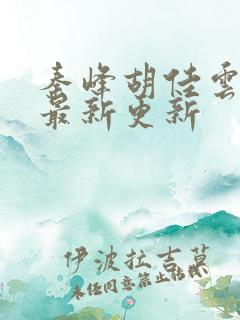 秦峰胡佳雲
最新更新
伊波拉吉莫
未经同意禁止转载